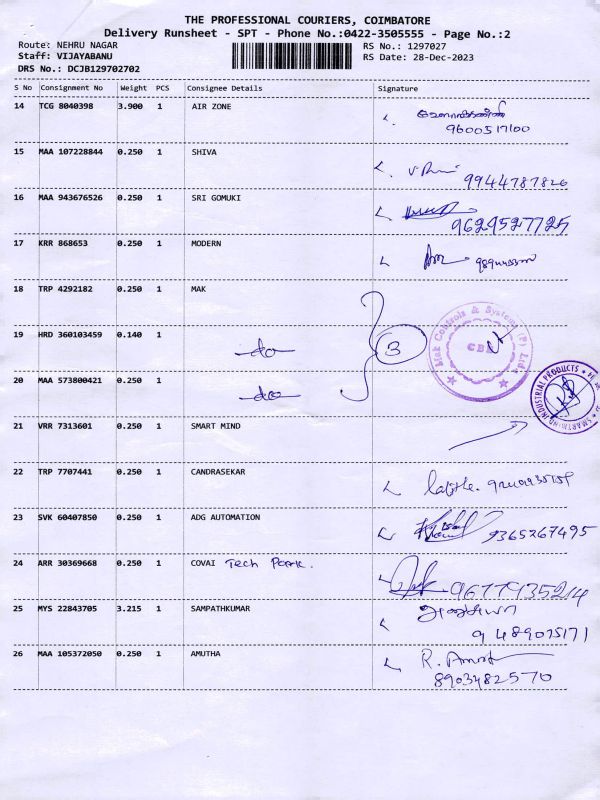 THE PROFESSIONAL COURIERS, COIMBATORE
Delivery Runsheet - SPT - Phone No.:0422-3505555 - Page No.:2
Route: NEHRU NAGAR
RS No.: 1297027
Staff: VIJAYABANU
RS Date: 28-Dec-2023
DRS No.: DCJB129702702
S No Consignment No Weight PCS Consignee Details Signature
14 TCG 8040398 3.900 1 AIR ZONE
9600517100
15 MAA 107228844 0.250 1 SHIVA
9944787826
16 MAA 943676526 0.250 1 SRI GOMUKI
9629527725
17 KRR 868653 0.250 1 MODERN
18 TRP 4292182 0.250 1 MAK
Mak Controls & Systems (P) Ltd.
CBE
19 HRD 360103459 0.140 1 -do- 3
20 MAA 573800421 0.250 1 -do-
INDUSTRIAL PRODUCTS
21 VRR 7313601 0.250 1 SMART MIND
22 TRP 7707441 0.250 1 CANDRASEKAR
23 SVK 60407850 0.250 1 ADG AUTOMATION
9365267495
24 ARR 30369668 0.250 1 COVAI Tech Park.
9677935214
25 MYS 22843705 3.215 1 SAMPATHKUMAR
9489075171
26 MAA 105372050 0.250 1 AMUTHA
8903482570